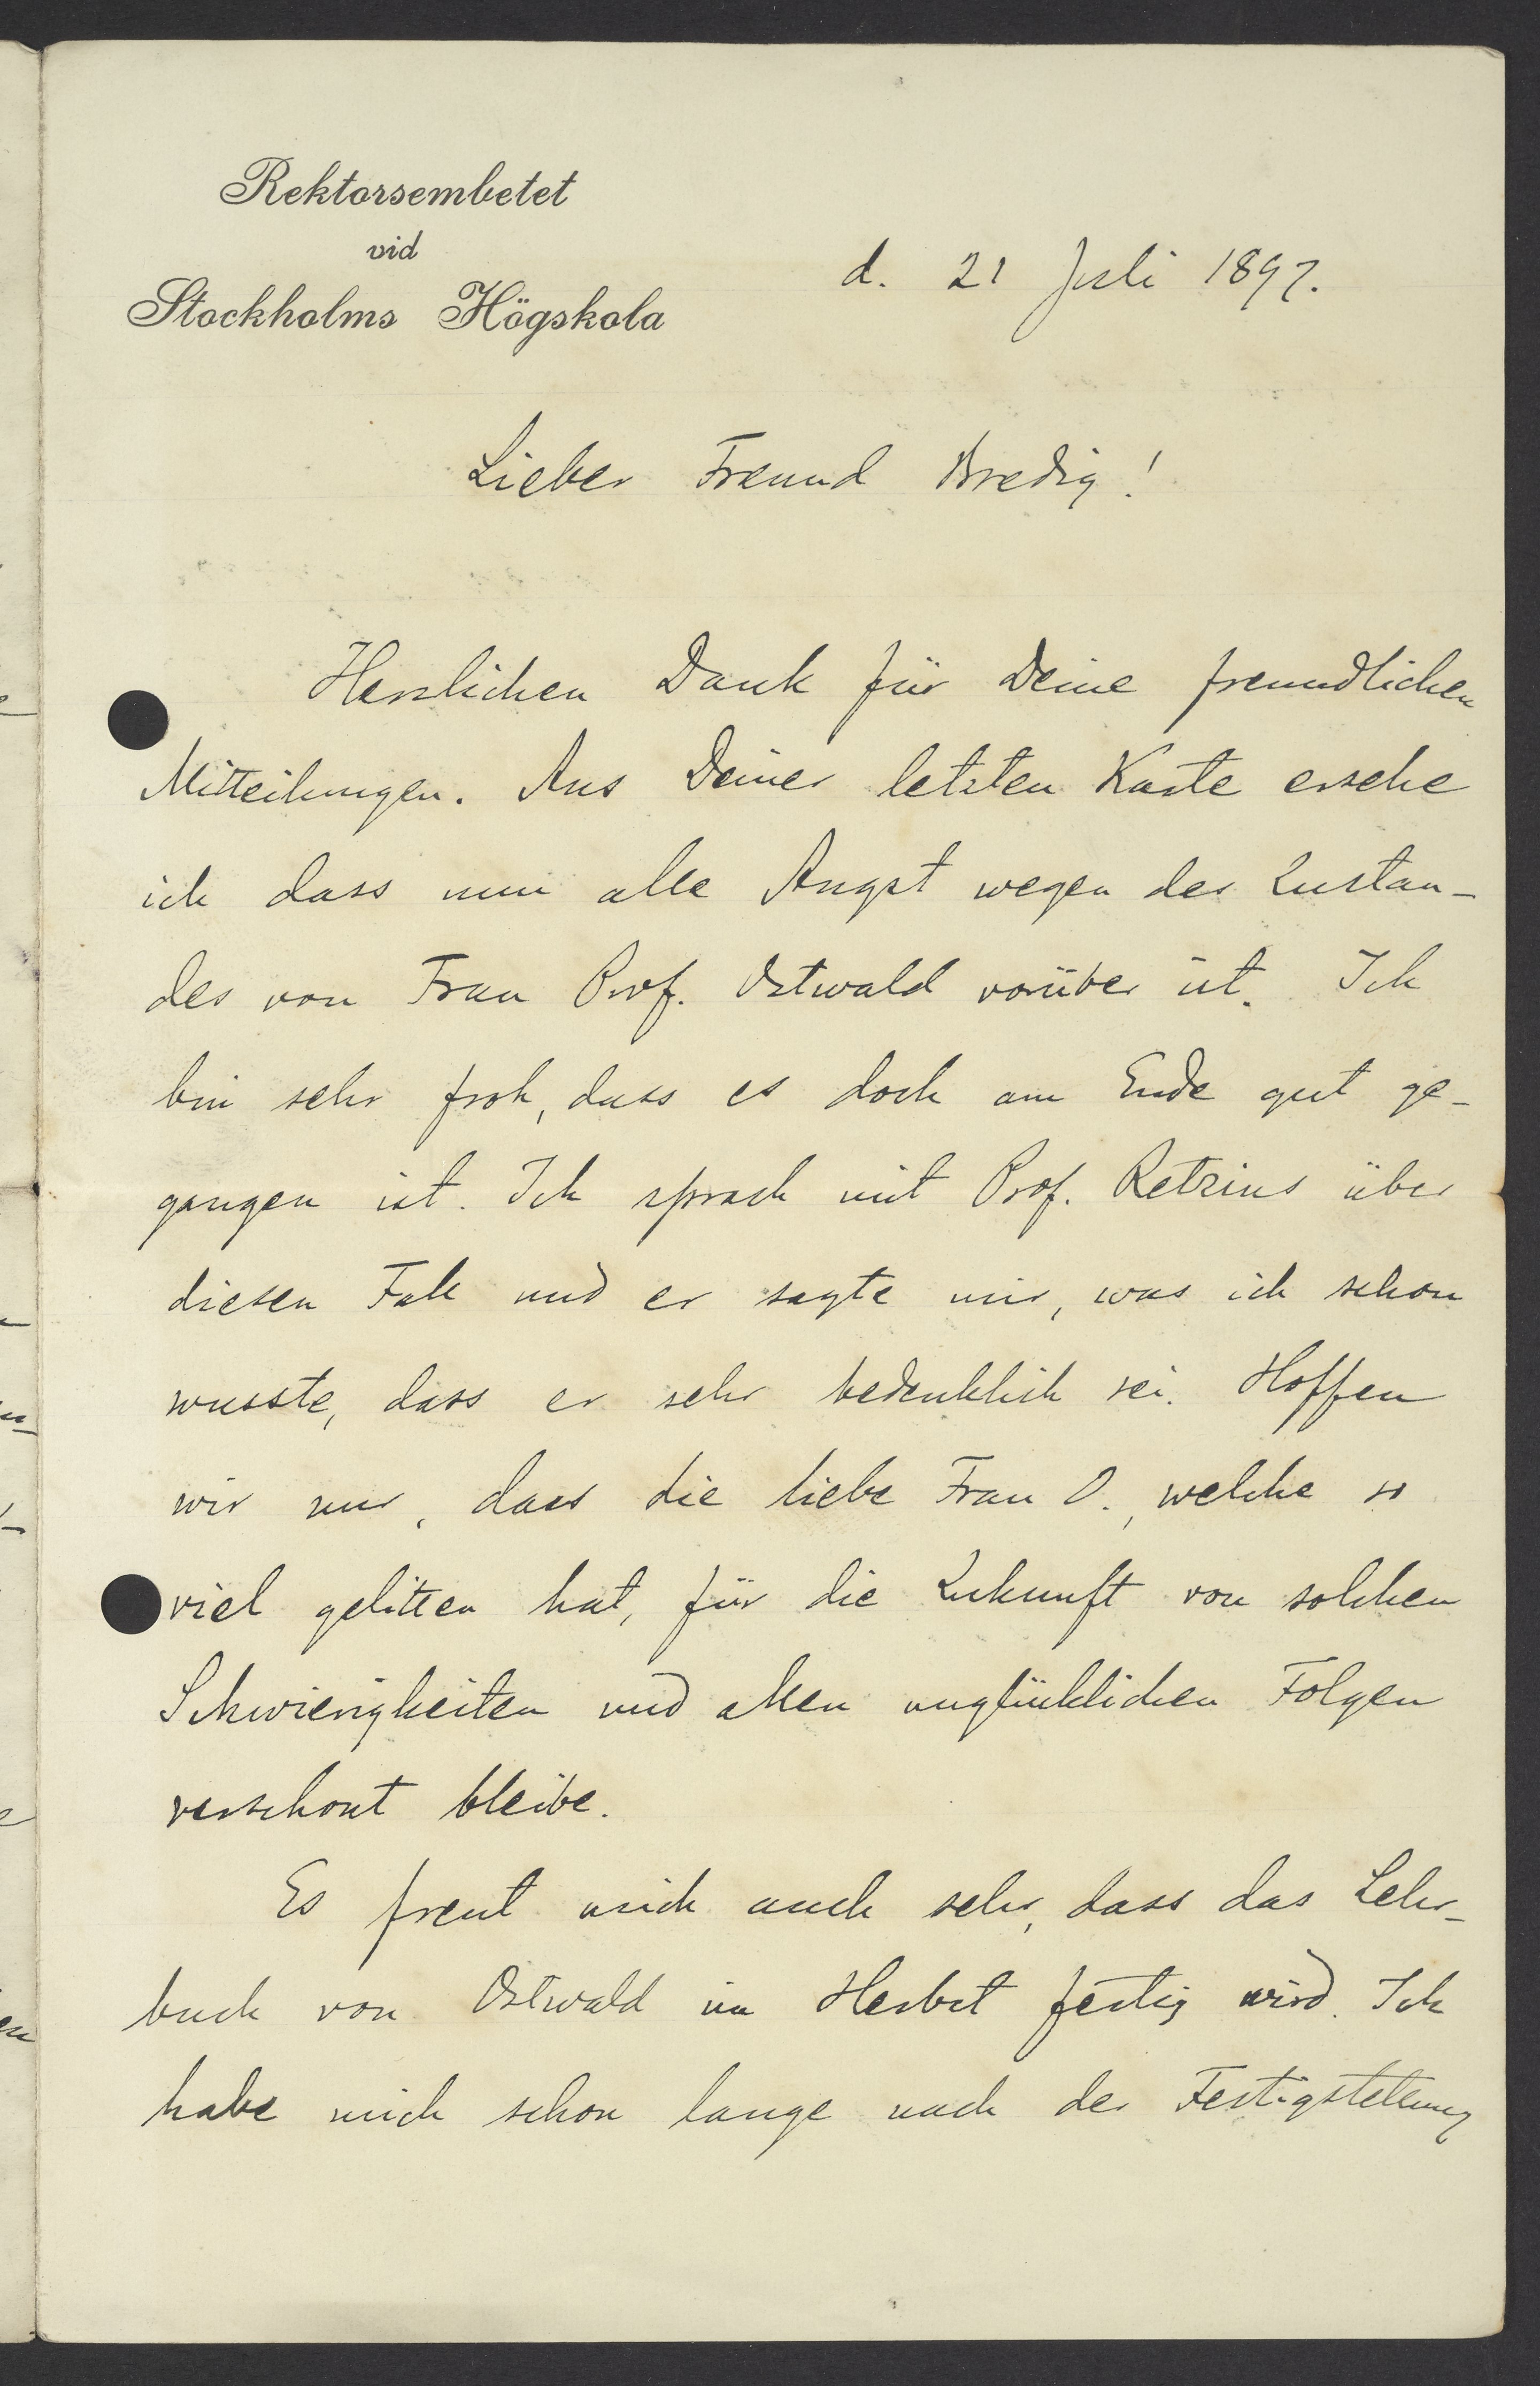 Rektorsembetet
vid
Stockholms Högskola
d. 21 Juli 1897.
Lieber Freund Bredig!
Herzlichen Dank für Deine freundlichen
Mitteilungen. Aus Deiner letzten Karte ersehe
ich dass nun alle Angst wegen des Zustan-
des von Frau Prof. Ostwald vorüber ist. Ich
bin sehr froh, dass es doch am Ende gut ge-
gangen ist. Ich sprach mit Prof. Retzius über
diesen Fall und er sagte mir, was ich schon
wusste, dass er sehr bedenklich sei. Hoffen
wir nur, dass die liebe Frau O., welche so
viel gelitten hat, für die Zukunft von solchen
Schwierigkeiten und allen unglücklichen Folgen
verschont bleibe.
Es freut mich auch sehr, dass das Lehr-
buch von Ostwald im Herbst fertig wird. Ich
habe mich schon lange nach der Fertigstellung